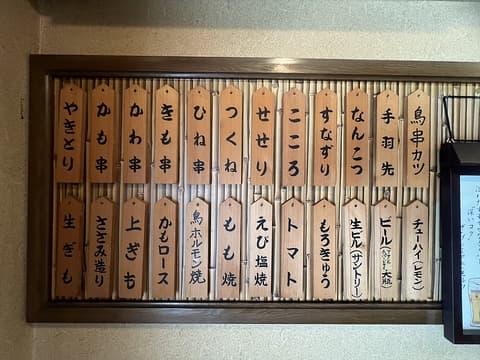 鳥串カツ
手羽先
なんこつ
すなずり
こころ
せせり
つくね
ひね串
きも串
かわ串
かも串
やきとり
チューハイ(レモン)
ビール 大瓶
生ビール(サントリー)
もろきゅう
トマト
えび塩焼
もも焼
鳥ホルモン焼
かもロース
上ぎも
ささみ造り
生ぎも